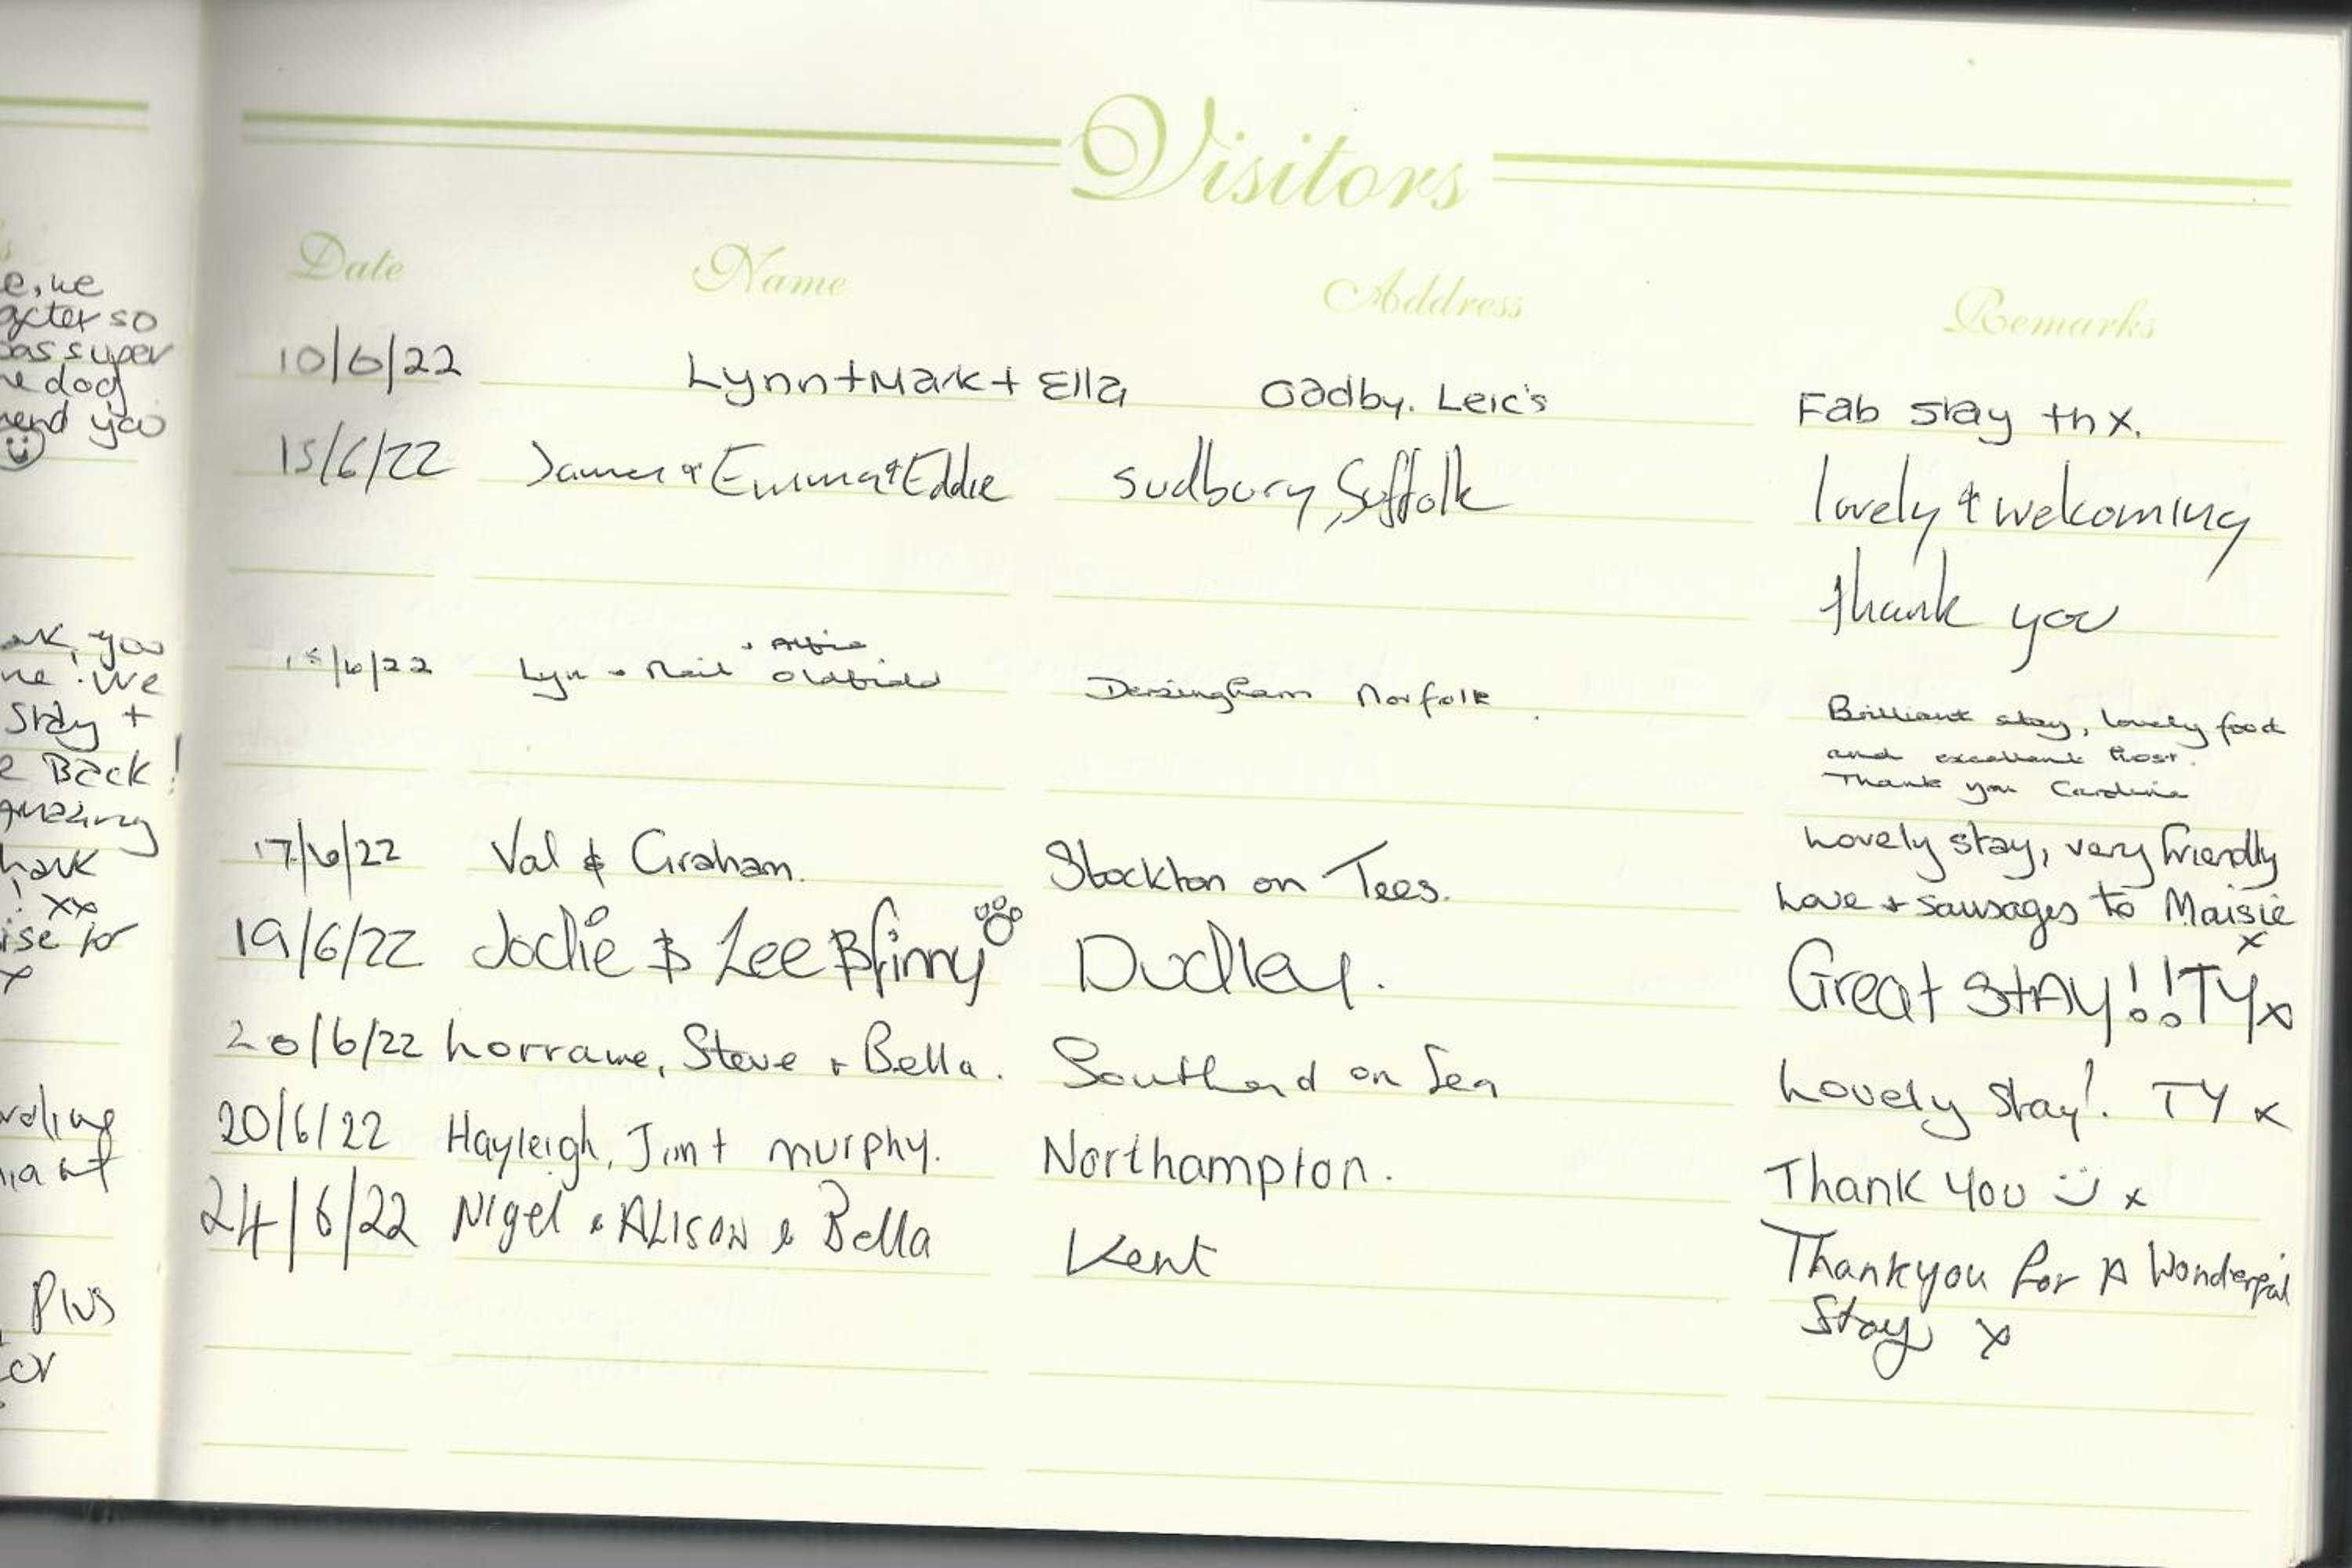 Visitors
Date Name Address Remarks
e, we
after so
was super
he dog
mend you
10/6/22 Lynn + Mark + Ella Oadby. Leic's Fab stay thx.
15/6/22 James & Emma & Eddie Sudbury, Suffolk lovely & welcoming
thank you
ank, you
me. We
Stay +
e Back!
Amazing
hank
! xx
ise for
x
+ Alfie
/6/22 Lyn + Neil Oldfield Dersingham Norfolk. Brilliant stay, lovely food
and excellent host.
Thank you Caroline
17/6/22 Val & Graham. Stockton on Tees. Lovely stay, very friendly
Love + sausages to Maisie
x
19/6/22 Jodie & Lee & finny Dudley. Great stAy!! TYx
20/6/22 Lorraine, Steve + Bella. Southend on Sea Lovely stay!. TY x
20/6/22 Hayleigh, Jim + murphy. Northampton. Thank you x
24/6/22 Nigel & ALISON & Bella Kent Thankyou for A Wonderful
Stay x
Plus
or